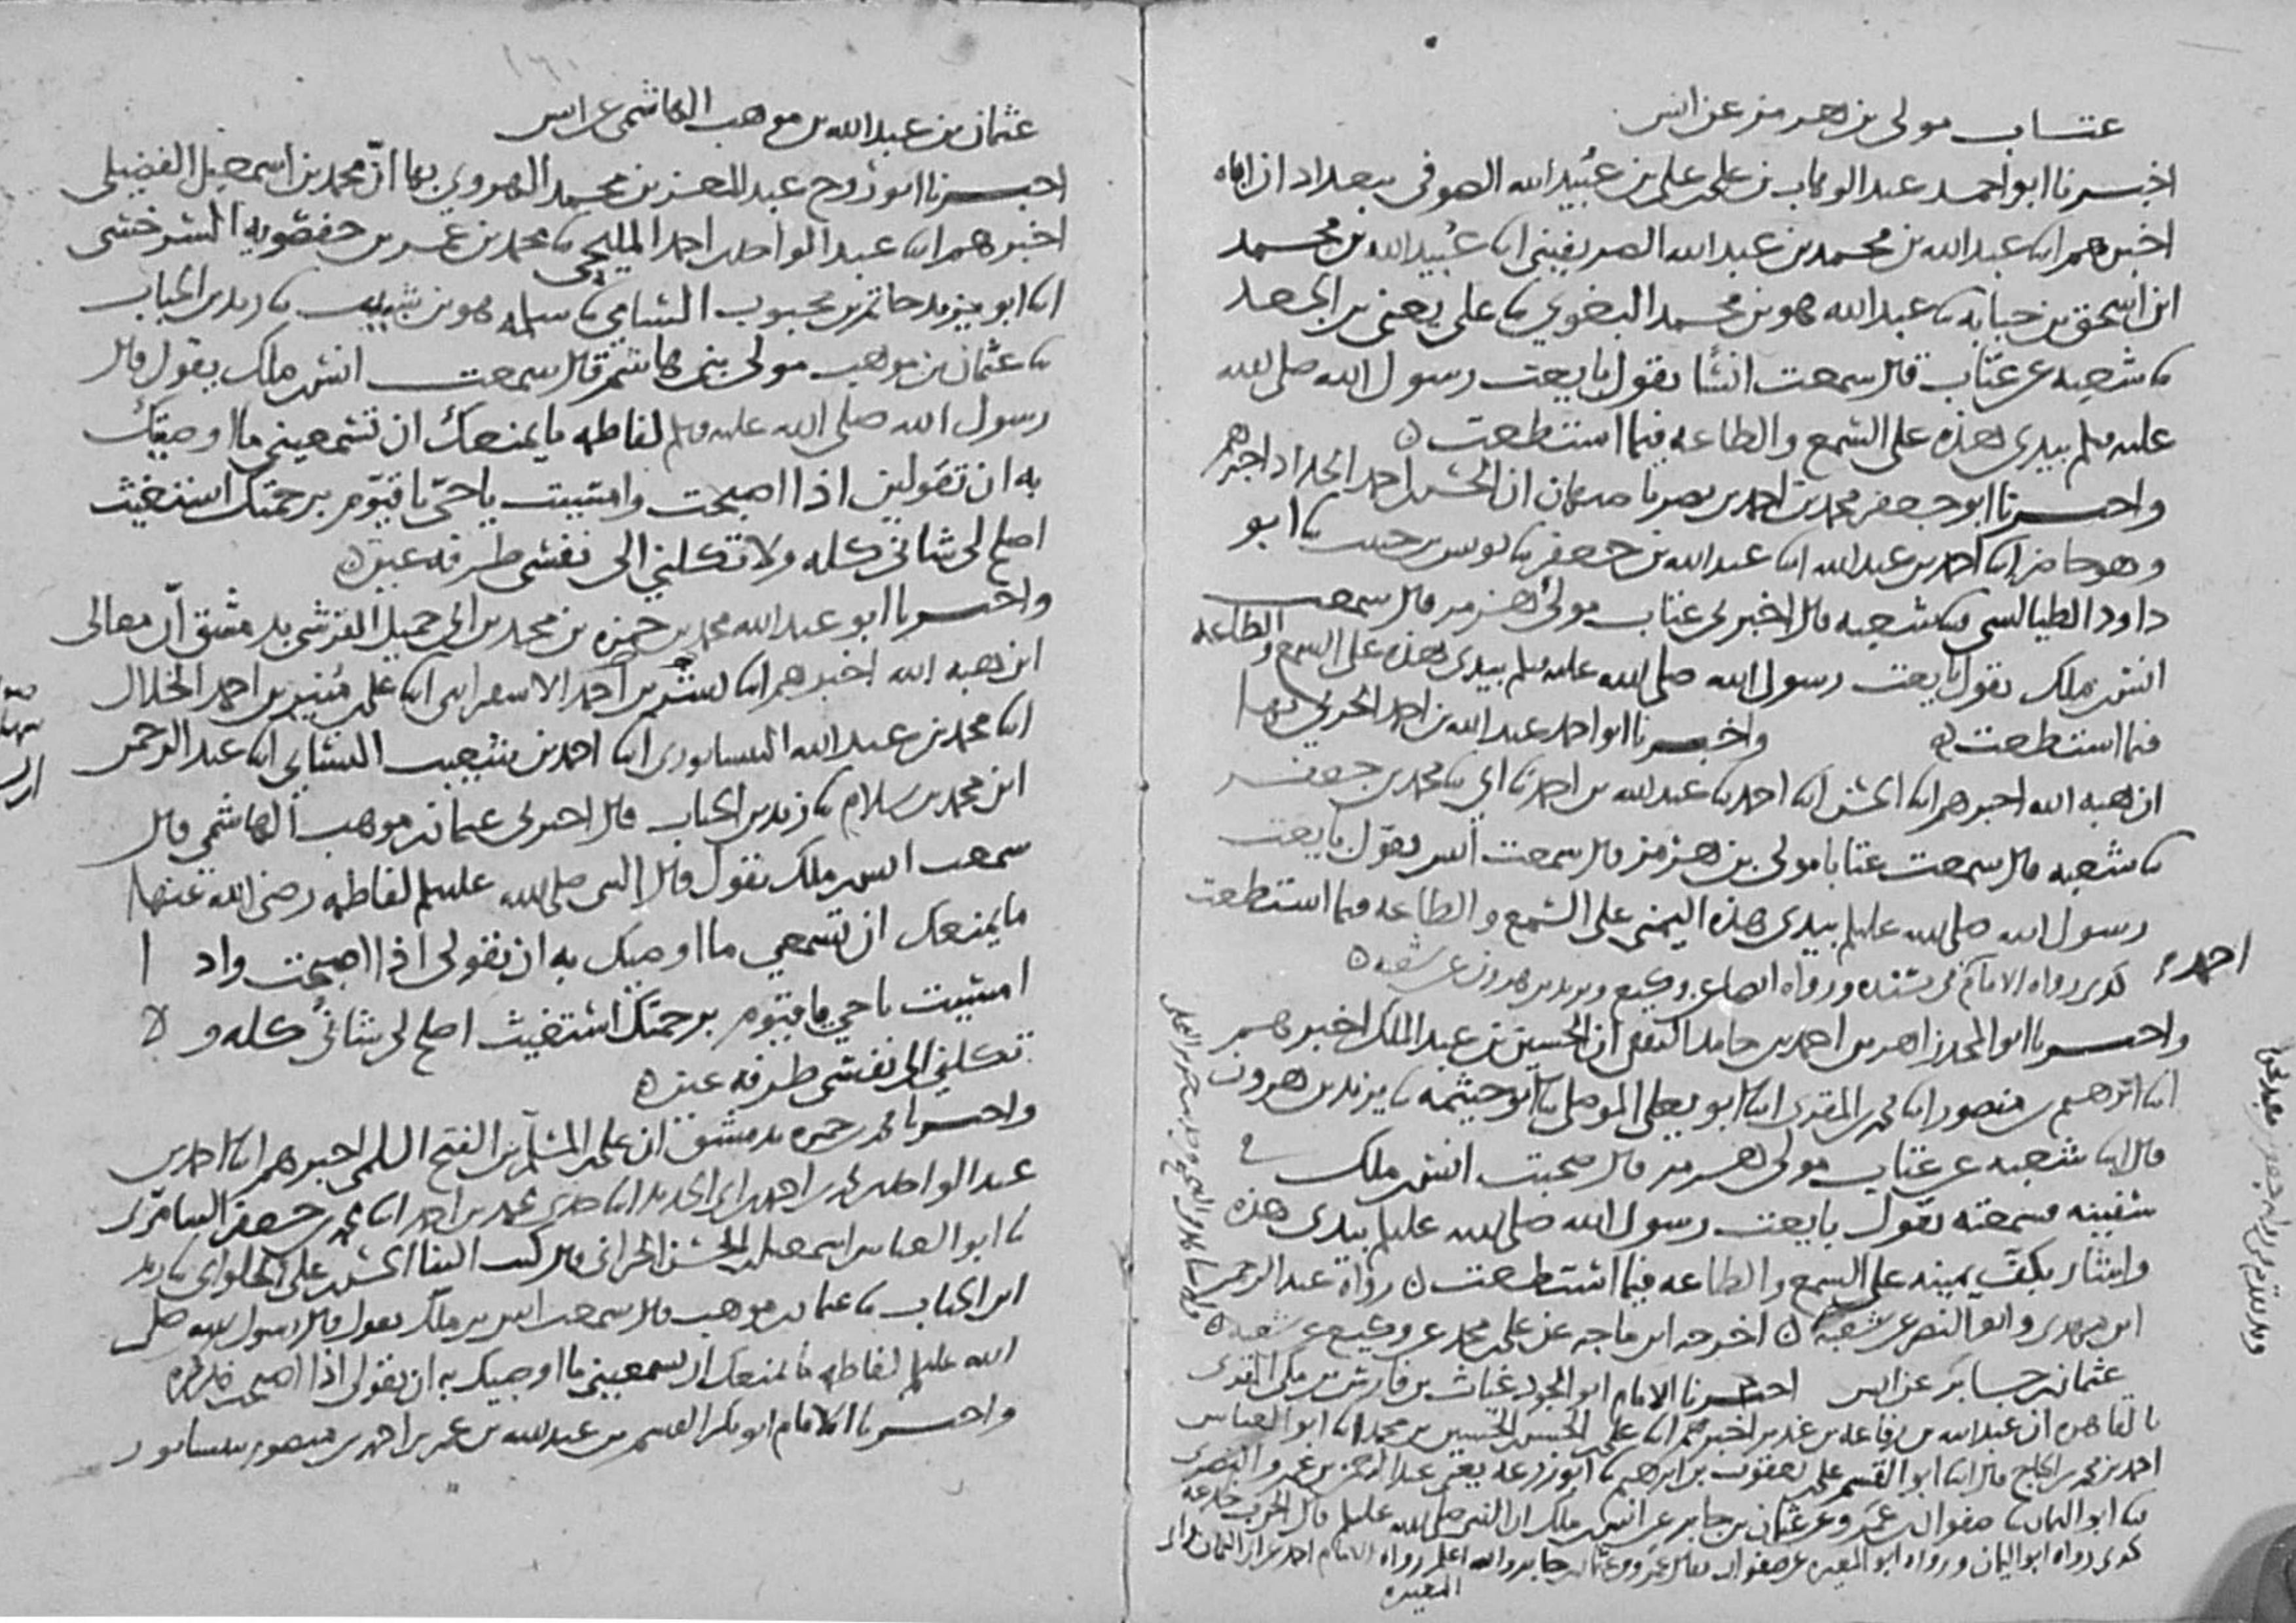 عتاب مولى بن هرمز عن انس
اخبرنا ابو احمد عبد الوهاب بن علي بن علي بن عبيد الله الصوفي ببغداد ان اباه
اخبرهم ابنا عبد الله بن محمد بن عبد الله الصريفيني ابنا عبيد الله بن محمد
ابن اسحق بن حبابه ثنا عبد الله هو بن محمد البغوي ثنا علي يعني بن الجعد
ثنا شعبه عن عتاب قال سمعت انسا يقول بايعت رسول الله صلى الله
عليه وسلم بيدي هذه على السمع والطاعه فيما استطعت
واخبرنا ابو جعفر محمد بن احمد بن نصر باصبهان ان الحسن بن احمد الحداد اخبرهم
وهو حاضر ابنا احمد بن عبد الله ابنا عبد الله بن جعفر ثنا يونس بن حبيب ثنا ابو
داود الطيالسي ثنا شعبه قال اخبرني عتاب مولى هرمز قال سمعت
انس بن ملك يقول بايعت رسول الله صلى الله عليه وسلم بيدي هذه على السمع والطاعه
فيما استطعت واخبرنا ابو احمد عبد الله بن احمد الحربي بها
ان هبه الله اخبرهم ابنا الحسن ابنا احمد ثنا عبد الله بن احمد ثنا ابي ثنا محمد بن جعفر
ثنا شعبه قال سمعت عتابا مولى بن هرمز قال سمعت انس يقول بايعت
رسول الله صلى الله عليه وسلم بيدي هذه اليمنى على السمع والطاعه فيما استطعت
كذى رواه الامام في مسنده ورواه ايضا عن وكيع ويزيد بن هرون عن شعبه
احمد
واخبرنا ابو المجد زاهر بن احمد بن حامد الثقفي ان الحسين بن عبد الملك اخبرهم
ابنا ابرهيم بن منصور ابنا محمد بن المقرى ابنا ابو يعلى الموصلي ثنا ابو خيثمه ثنا يزيد بن هرون
قال ابنا شعبه عن عتاب مولى هرمز قال صحبت انس بن ملك في
سفينه فسمعته يقول بايعت رسول الله صلى الله عليه وسلم بيدي هذه
واشار بكف يمينه على السمع والطاعه فيما استطعت رواه عبد الرحمن
ابن مهدي وابو النصر عن شعبه اخرجه ابن ماجه عن علي بن محمد عن وكيع عن شعبه
عثمان بن جابر عن انس اخبرنا الامام ابو الجود غياث بن فارس بن مكي المقرى
بالقاهره ان عبد الله بن رفاعه بن غدير اخبرهم ابنا علي بن الحسن بن الحسين بن محمد ابنا ابو العباس
احمد بن محمد بن الحاج قال ابنا ابو القسم علي بن يعقوب بن ابرهيم ثنا ابو زرعه يعني عبد الرحمن بن عمرو النصري
ثنا ابو اليمان ثنا صفوان بن عمرو عن عثمان بن جابر عن انس بن ملك ان النبي صلى الله عليه وسلم قال الحرب خدعه
كذى رواه ابو اليمان ورواه ابو المغيره عن صفوان بن عمرو عن عثمان بن جابر والله اعلم رواه الامام احمد عن ابي اليمان وابي
المغيره
عثمان بن عبد الله بن موهب الهاشمي عن انس
اخبرنا ابو روح عبد المعز بن محمد الهروي بها ان محمد بن اسمعيل الفضيلي
اخبرهم ابنا عبد الواحد بن احمد المليحي ثنا محمد بن عمر بن حفصويه السرخسي
ابنا ابو يزيد حاتم بن محبوب الشامي ثنا سلمه هو بن شبيب ثنا زيد بن الحباب
ثنا عثمان بن موهب مولى بني هاشم قال سمعت انس بن ملك يقول قال
رسول الله صلى الله عليه وسلم لفاطمه ما يمنعك ان تسمعيني ما اوصيك
به ان تقولين اذا اصبحت وامسيت يا حي يا قيوم برحمتك استغيث
اصلح لي شاني كله ولا تكلني الى نفسي طرفه عين
واخبرنا ابو عبد الله محمد بن حمزه بن محمد بن ابي جميل القرشي بدمشق ان معالى
ابن هبه الله اخبرهم ابنا سهل بن بشر بن احمد الاسفرايني ابنا علي بن منير بن احمد الخلال
ابنا محمد بن عبد الله النيسابوري ابنا احمد بن شعيب النسايي ابنا عبد الرحمن
ابن محمد بن سلام ثنا زيد بن الحباب قال اخبرني عثمان بن موهب الهاشمي قال
سمعت انس بن ملك يقول قال النبي صلى الله عليه وسلم لفاطمه رضي الله عنها
ما يمنعك ان تسمعي ما اوصيك به ان تقولي اذا اصبحت واذا
امسيت يا حي يا قيوم برحمتك استغيث اصلح لي شاني كله ولا
تكلني الى نفسي طرفه عين
واخبرنا محمد بن حمزه بدمشق ان علي بن المسلم بن الفتح السلمي اخبرهم ابنا احمد بن
عبد الواحد بن محمد بن احمد بن ابي الحديد ابنا جدي محمد بن احمد ابنا محمد بن جعفر السامري
ثنا ابو العباس اسمعيل بن الحسن الحراني قال كتب الينا الحسن بن علي الحلواني ثنا زيد
ابن الحباب ثنا عثمان بن موهب قال سمعت انس بن ملك يقول قال رسول الله صلى
الله عليه وسلم لفاطمه ما يمنعك ان تسمعيني ما اوصيك به ان تقولي اذا اصبحت فذكره
واخبرنا الامام ابو بكر القسم بن عبد الله بن عمر بن احمد بن منصور بنيسابور